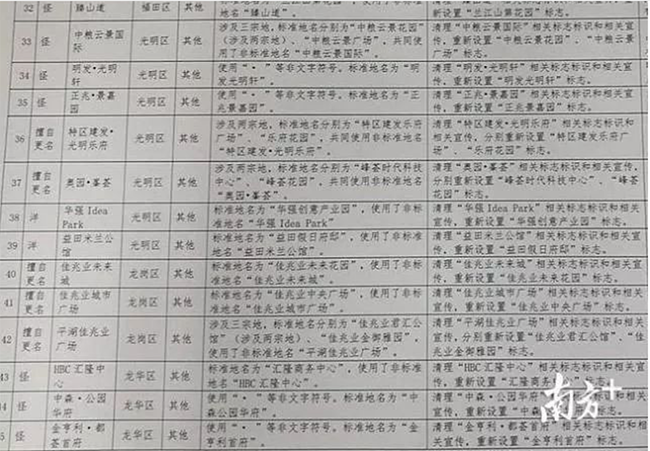 32 怪 臻山道 福田区 其他 地名“臻山道”。 重新设置“兰江山第花园”标志。
33 怪 中粮云景国际 光明区 其他 涉及三宗地，标准地名分别为“中粮云景花园”（涉及两宗地）、“中粮云景广场”，共同使用了非标准地名“中粮云景国际”。 清理“中粮云景国际”相关标志标识和相关宣传，重新设置“中粮云景花园”、“中粮云景广场”标志。
34 怪 明发·光明轩 光明区 其他 使用“·”等非文字符号。标准地名为“明发光明轩”。 清理“明发·光明轩”相关标志标识和相关宣传，重新设置“明发光明轩”标志。
35 怪 正兆·景嘉园 光明区 其他 使用“·”等非文字符号。标准地名为“正兆景嘉园”。 清理“正兆·景嘉园”相关标志标识和相关宣传，重新设置“正兆景嘉园”标志。
36 擅自更名 特区建发·光明乐府 光明区 其他 涉及两宗地，标准地名分别为“特区建发乐府广场”、“乐府花园”，共同使用非标准地名“特区建发·光明乐府”。 清理“特区建发·光明乐府”相关标志标识和相关宣传，分别重新设置“特区建发乐府广场”、“乐府花园”标志。
37 擅自更名 奥园·峯荟 光明区 其他 涉及两宗地，标准地名分别为“峰荟时代科技中心”、“峰荟花园”，共同使用非标准地名“奥园·峯荟”。 清理“奥园·峯荟”相关标志标识和相关宣传，分别重新设置“峰荟时代科技中心”、“峰荟花园”标志。
38 洋 华强Idea Park 光明区 其他 标准地名为“华强创意产业园”，使用了非标准地名“华强Idea Park” 清理“华强Idea Park”相关标志标识和相关宣传，重新设置“华强创意产业园”标志。
39 洋 益田米兰公馆 光明区 其他 标准地名为“益田假日府邸”，使用了非标准地名“益田米兰公馆”。 清理“益田米兰公馆”相关标志标识和相关宣传，重新设置“益田假日府邸”标志。
40 擅自更名 佳兆业未来城 龙岗区 其他 标准地名为“佳兆业未来花园”，使用了非标准地名“佳兆业未来城”。 清理“佳兆业未来城”相关标志标识和相关宣传，重新设置“佳兆业未来花园”标志。
41 擅自更名 佳兆业城市广场 龙岗区 其他 标准地名为“佳兆业中央广场”，使用了非标准地名“佳兆业城市广场”。 清理“佳兆业城市广场”相关标志标识和相关宣传，重新设置“佳兆业中央广场”标志。
42 擅自更名 平湖佳兆业广场 龙岗区 其他 涉及三宗地，标准地名分别为“佳兆业君汇公馆”（涉及两宗地）、“佳兆业金御雅园”，使用了非标准地名“平湖佳兆业广场”。 清理“平湖佳兆业广场”相关标志标识和相关宣传，分别重新设置“佳兆业君汇公馆”、“佳兆业金御雅园”标志。
43 怪 HBC汇隆中心 龙华区 其他 标准地名为“汇隆商务中心”，使用了非标准地名“HBC汇隆中心”。 清理“HBC汇隆中心”相关标志标识和相关宣传，重新设置“汇隆商务中心”标志。
4 怪 中森·公园华府 龙华区 其他 使用“·”等非文字符号。标准地名为“中森公园华府”。 清理“中森·公园华府 宣传，重新设置“中森
5 怪 金亨利·都荟首府 龙华区 其他 使用“·”等非文字符号。标准地名为“金亨利首府”。 清理“金亨利·都荟首府”相关标志标识和相关宣传，重新设置“金亨利首府”标志。
南方+